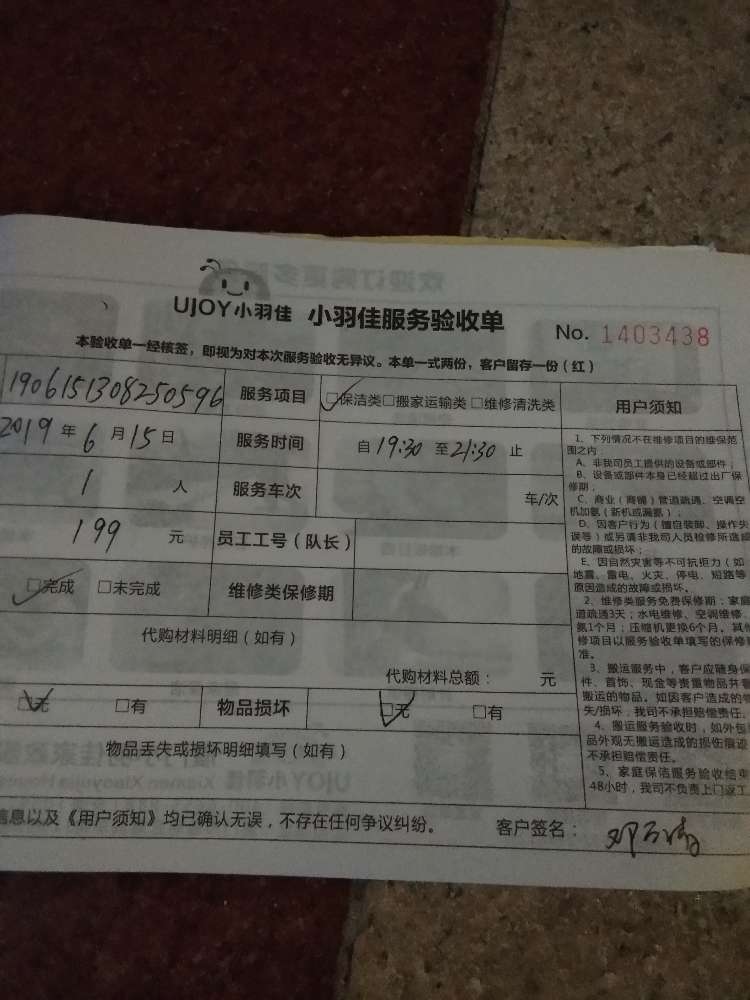 UJOY小羽佳 小羽佳服务验收单 No. 1403438
本验收单一经核签，即视为对本次服务验收无异议。本单一式两份，客户留存一份（红）
1906151308250596 服务项目 □保洁类□搬家运输类 □维修清洗类 用户须知
2019 年 6 月 15 日 服务时间 自 19:30 至 21:30 止
1 人 服务车次 车/次
199 元 员工工号（队长）
□完成 □未完成 维修类保修期
代购材料明细（如有）
代购材料总额： 元
□无 □有 物品损坏 □无 □有
物品丢失或损坏明细填写（如有）
信息以及《用户须知》均已确认无误，不存在任何争议纠纷。 客户签名：
1、下列情况不在维修项目的维保范
围之内：
A、非我司员工提供的设备或部件；
B、设备或部件本身已经超过出厂保
修期；
C、商业（商铺）管道疏通、空调空
机加氨（新机或漏氨）；
D、因客户行为（擅自装卸、操作失
误等）或另请非我司人员检修所造成
的故障或损坏；
E、因自然灾害等不可抗拒力（如
地震、雷电、火灾、停电、短路等
原因造成的故障或损坏。
2、维修类服务免费保修期：家庭
道疏通3天；水电维修、空调维修、
氨1个月；压缩机更换6个月。其他
修项目以服务验收单填写的保修
准。
3、搬运服务中，客户应随身保
件、首饰、现金等贵重物品并
搬运的物品。如因客户造成的物
失/损坏，我司不承担赔偿责任。
4、搬运服务验收时，如外包
品外观无搬运造成的损伤痕迹
不承担赔偿责任。
5、家庭保洁服务验收结束
48小时，我司不负责上门返工